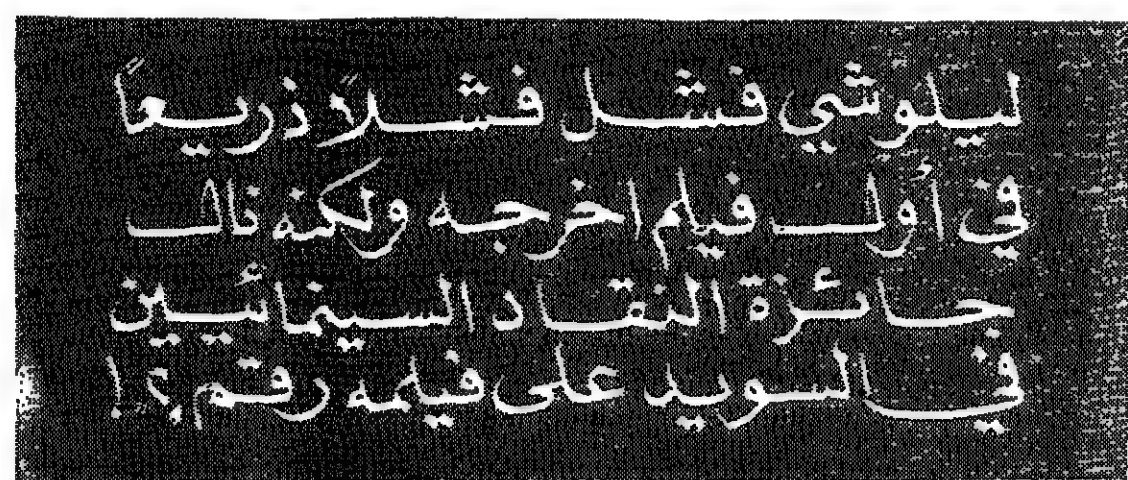 ليلوشي فشل فشلاً ذريعاً
في أول فيلم اخرجه ولكنه نال
جائزة النقاد السينمائيين
في السويد على فيلمه رقم